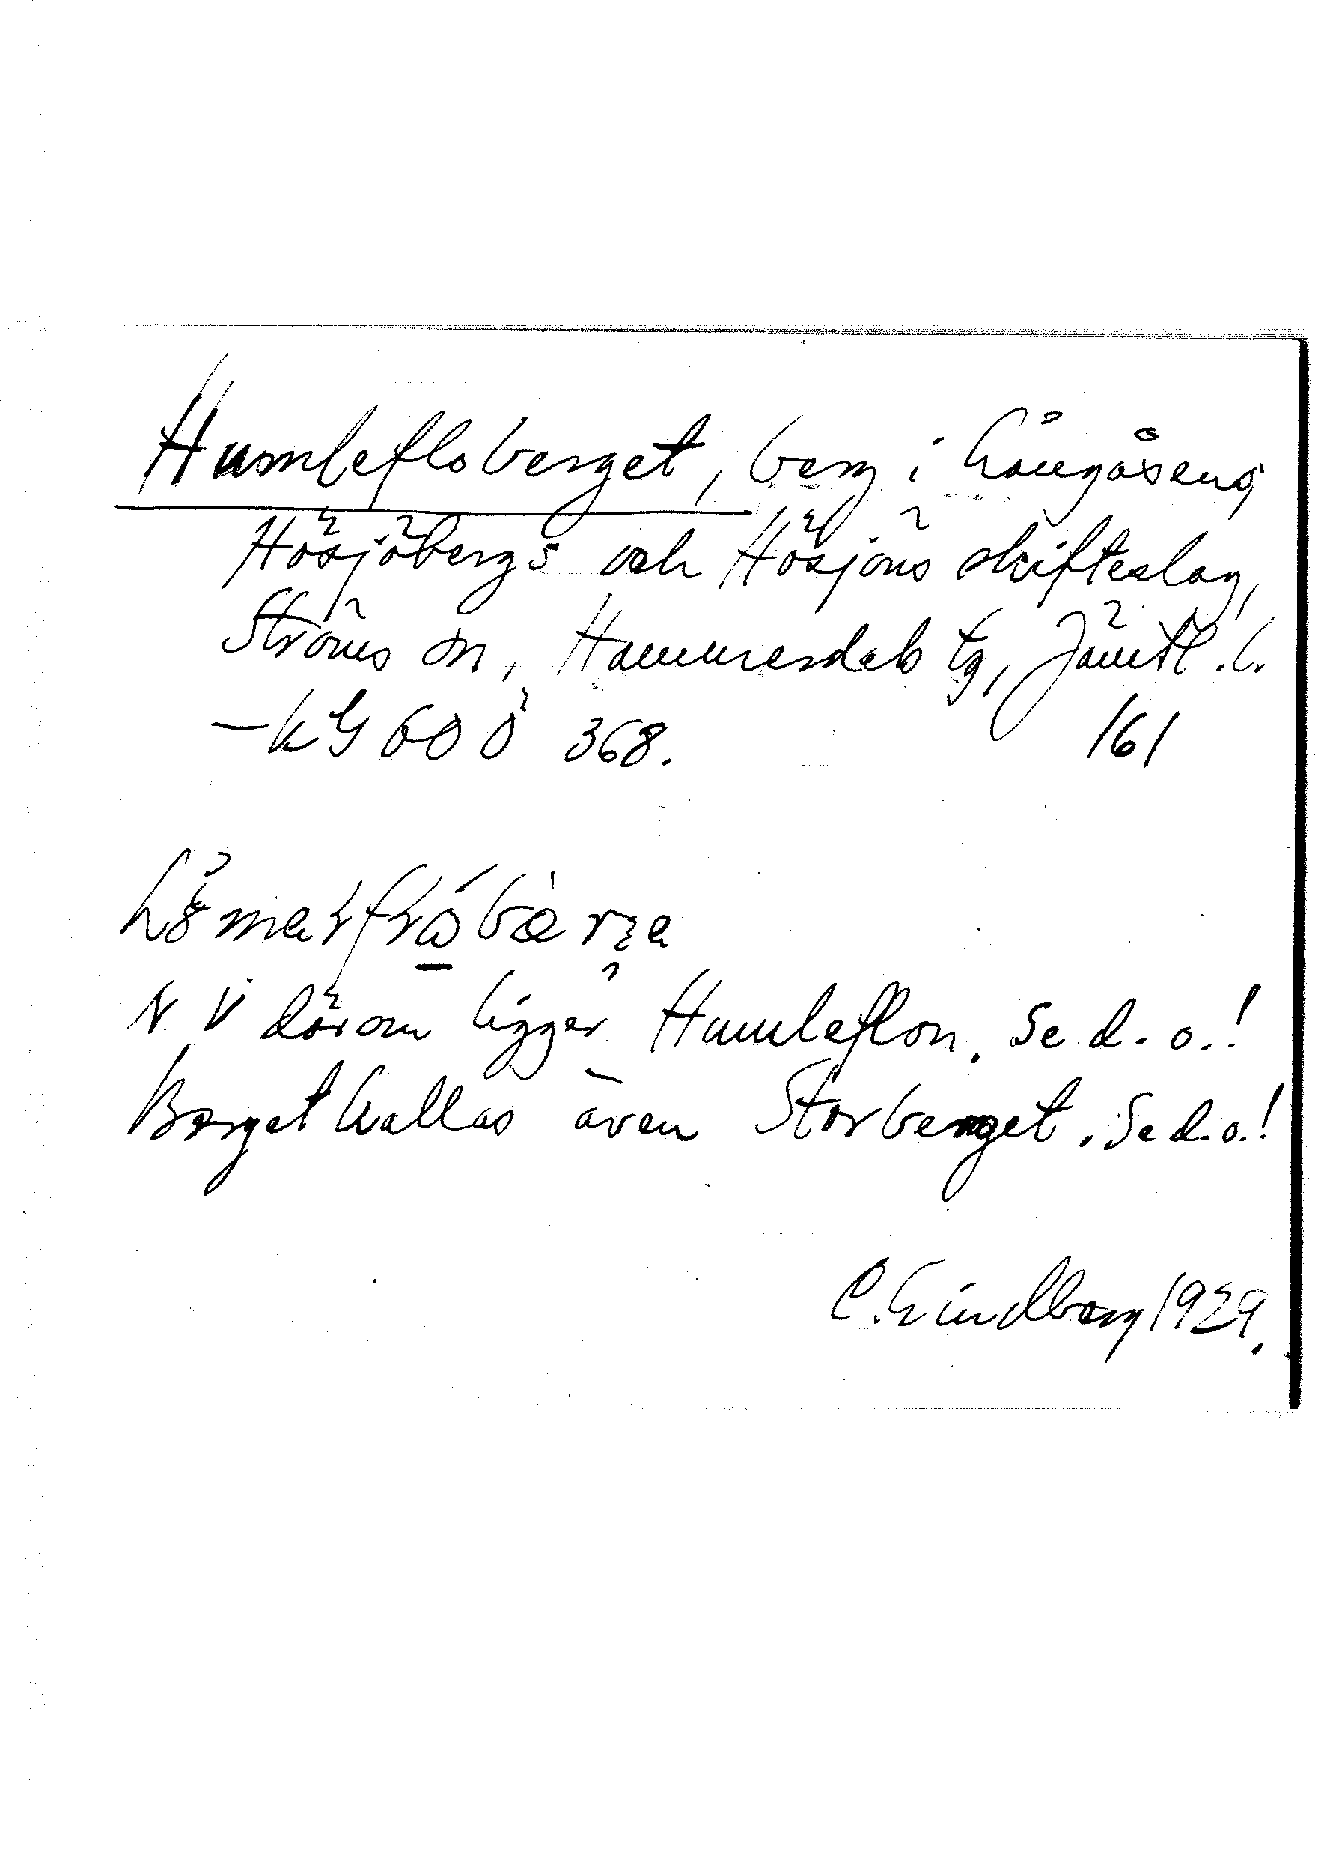 Humlefloberget, berg i Långåsens,
Hösjöbergs och Hösjöns skifteslag,
Ströms sn, Hammerdals tg, Jämtl. l.
– KG 60 Ö 368. 161
N V därom ligger Humleflon. Se d. o.!
Berget kallas även Storberget. Se d.o.!
C. Lindberg 1929.